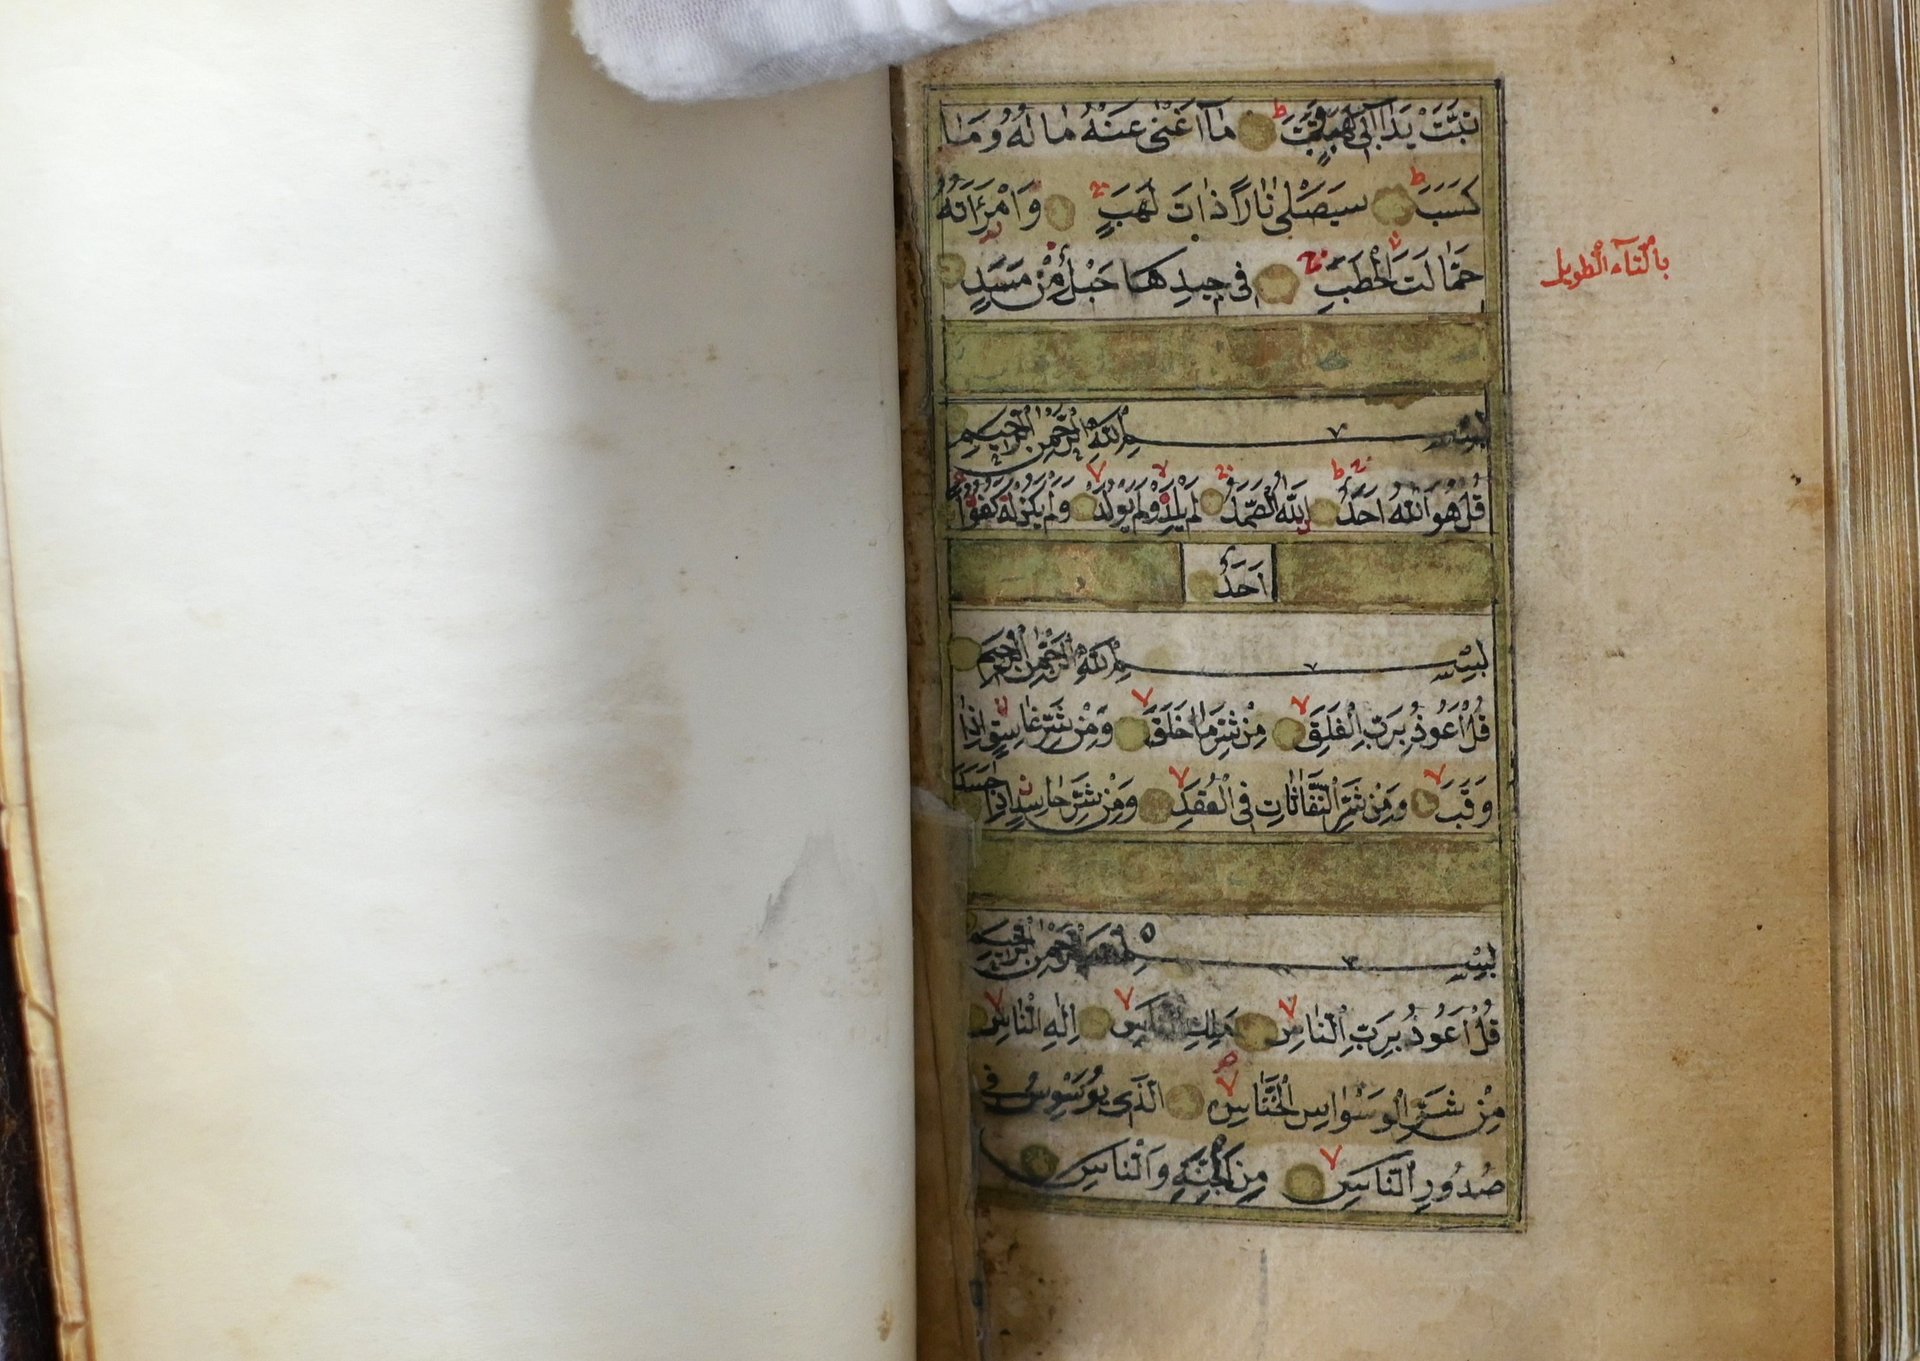 تَبَّتْ يَدَا اَبِى لَهَبٍ وَتَبَّ ط مَا اَغْنٰى عَنْهُ مَا لُهُ وَمَا
كَسَبَ ط سَيَصْلٰى نَارًا ذَاتَ لَهَبٍ ج وَامْرَاَتُهُ
حَمَّالَتَ الْحَطَبِ ج فِى جِيدِهَا حَبْلٌ مِنْ مَسَدٍ
بالتاء الطويل
بِسْمِ اللّٰهِ الرَّحْمٰنِ الرَّحِيمِ
قُلْ هُوَ اللّٰهُ اَحَدٌ ط ج اَللّٰهُ الصَّمَدُ ج لَمْ يَلِدْ لا وَلَمْ يُولَدْ لا وَلَمْ يَكُنْ لَهُ كُفُوًا
اَحَدٌ
بِسْمِ اللّٰهِ الرَّحْمٰنِ الرَّحِيمِ
قُلْ اَعُوذُ بِرَبِّ الْفَلَقِ لا مِنْ شَرِّ مَا خَلَقَ لا وَمِنْ شَرِّ غَاسِقٍ اِذَا
وَقَبَ لا وَمِنْ شَرِّ النَّفَّاثَاتِ فِى الْعُقَدِ لا وَمِنْ شَرِّ حَاسِدٍ اِذَا حَسَدَ
بِسْمِ اللّٰهِ الرَّحْمٰنِ الرَّحِيمِ
قُلْ اَعُوذُ بِرَبِّ النَّاسِ لا مَلِكِ النَّاسِ لا اِلٰهِ النَّاسِ لا
مِنْ شَرِّ الْوَسْوَاسِ الْخَنَّاسِ لا الَّذِى يُوَسْوِسُ فِى
صُدُورِ النَّاسِ لا مِنَ الْجِنَّةِ وَالنَّاسِ